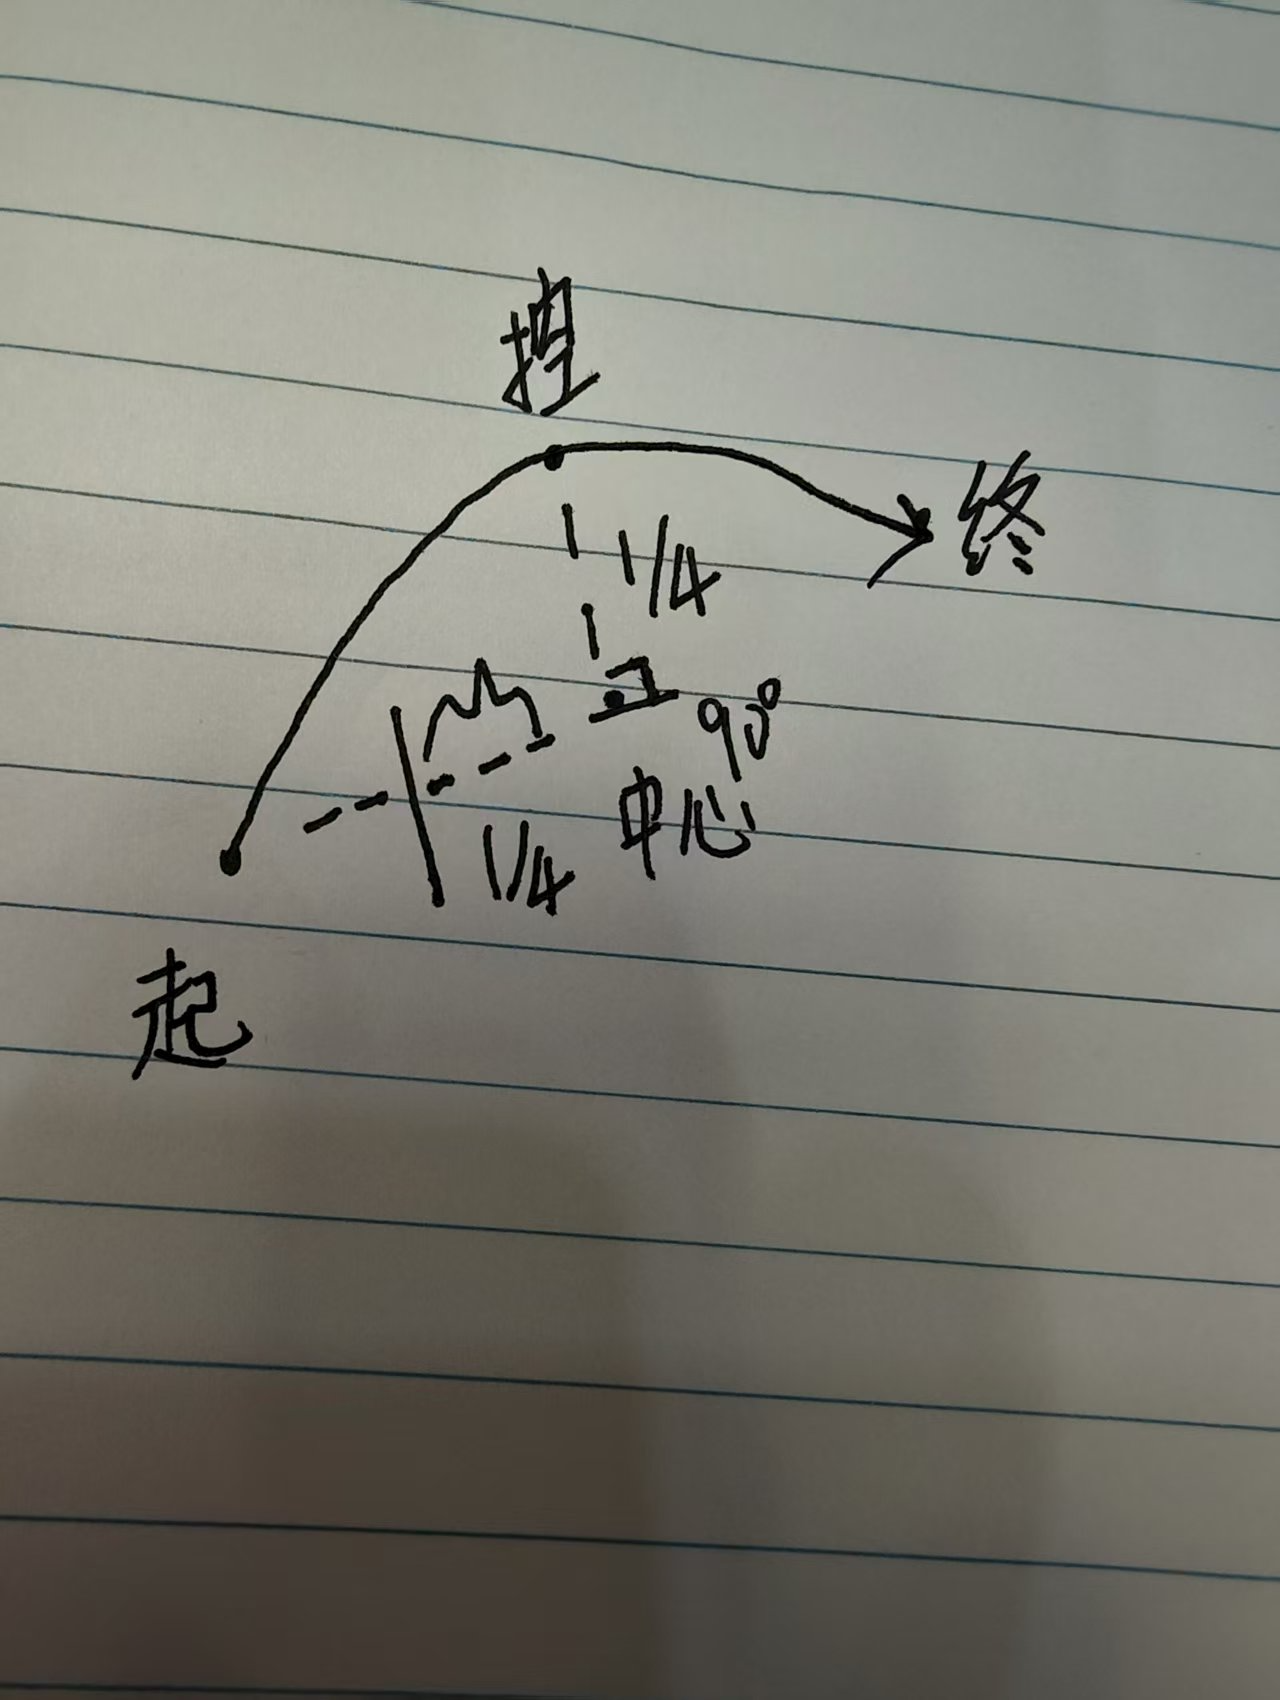 控
终
1/4
90°
中心
1/4
起